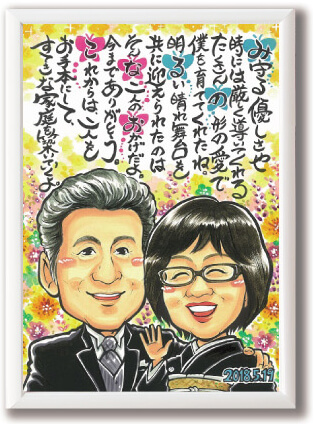 み守る優しさや
時には厳しく導いてくれる
たくさんの形の愛で
僕を育ててくれたね。
明るい晴れ舞台を
共に迎えられたのは
そんな二人のおかげだよ。
今までありがとう。
これからは二人を
お手本にして、
すてきな家庭を築いてくよ。
2018.5.19